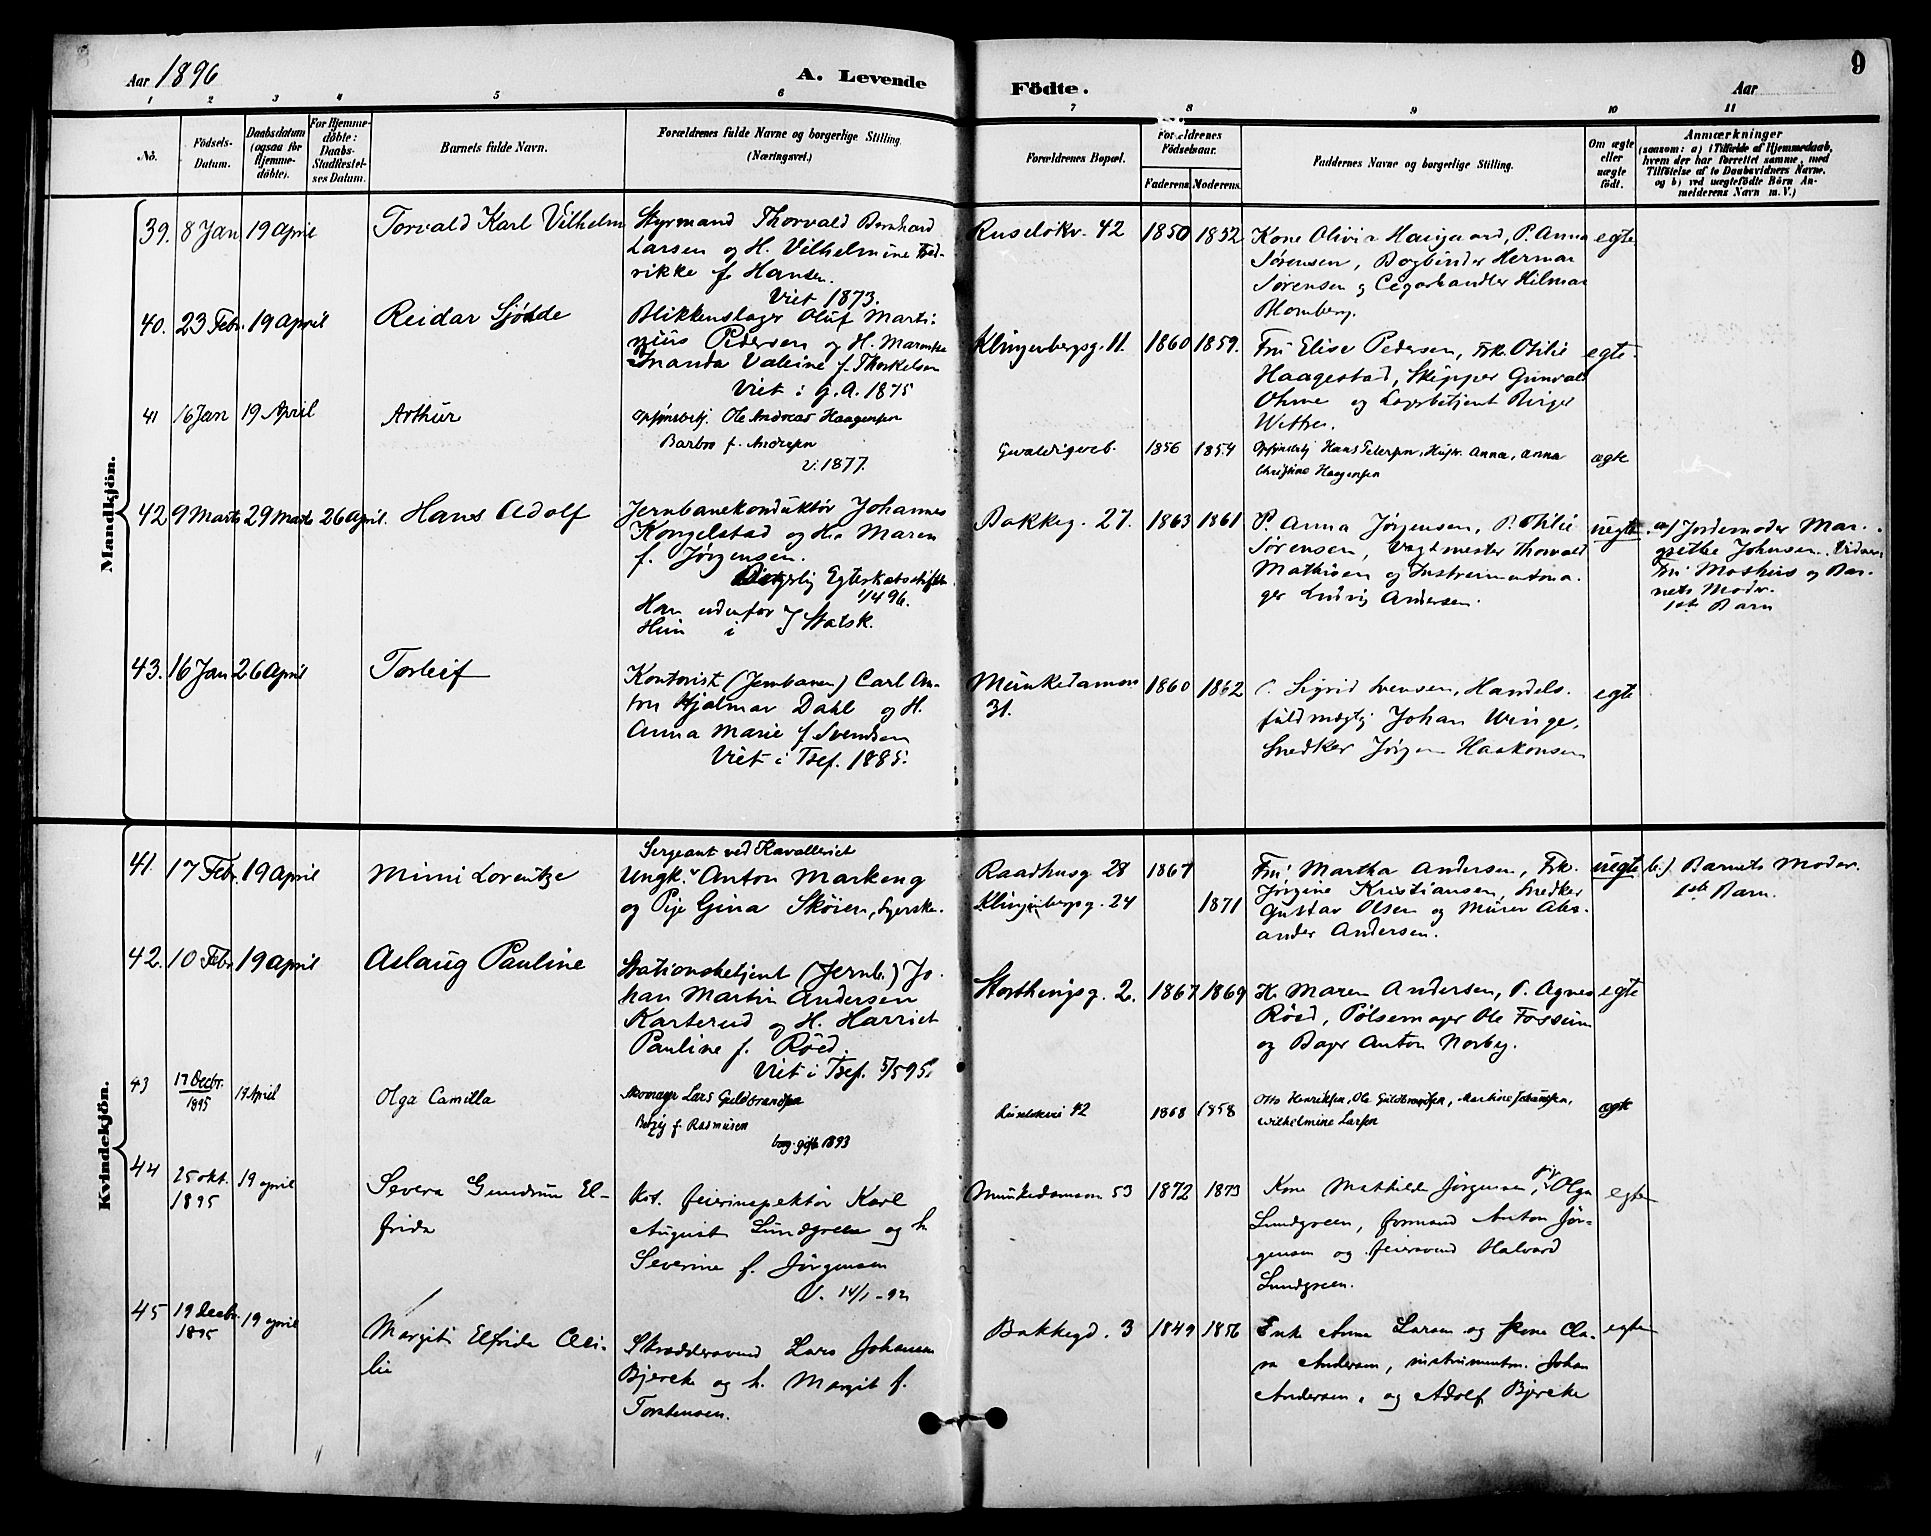 Aar 1896
A. Levende
Födte.
Aar
9
1 2 3 4 5 6 7 8 9 10 11
No.
Födsels-
Datum.
Daabsdatum
(ogsaa for
Hjemme-
döbte).
For Hjemme-
döbte:
Daabs-
Stadfæstel-
ses Datum.
Barnets fulde Navn.
Forældrenes fulde Navne og borgerlige Stilling.
(Næringsvei.)
Forældrenes Bopæl.
Forældrenes
Födselsaar.
Faderens Moderens.
Faddernes Navne og borgerlige Stilling.
Om ægte
eller
uægte
födt.
Anmærkninger
(saasom: a) i Tilfælde af Hjemmedaab,
hvem der har forrettet samme, med
Tilföielse af to Daabsvidners Navne,
og b) ved uægtefödte Börn An-
melderens Navn m. V.)
Mandkjön.
39. 8 Jan 19 April Torvald Karl Vilhelm
Styrmand Thorvald Bernhard
Larsen og H. Vilhelmine Fred-
rikke f. Hansen.
Viet 1873.
Ruseløkv. 42 1850 1852
Kone Olivia Haugaard, P. Anna
Sørensen, Bogbinder Herman
Sørensen og Cigarhandler Hilmar
Blomberg.
egte
40. 23 Febr. 19 April Reidar Sjødde
Blikkenslager Oluf Marti-
nius Pedersen og H. Marenthe
Inanda Valeine f. Thorkelsen
Viet i G. A. 1875
Klingenbergsg. 11. 1860 1859.
Fru Elise Pedersen, Frk. Othilie
Haagestad, Skipper Gunvald
Ohme og Lagerbetjent Birger
Wettre.
egte.
41 16 Jan 19 April Arthur
Opsynsbetj. Ole Andreas Haagensen
Barbro f. Andresen
V. 1877.
Gevaldigerveb. 1856 1854
Opsynsbetj Hans Petersen, Hustr. Anna, Anna
Christine Haagensen
ægte
42 9 Marts 29 Marts 26 April. Hans Adolf
Jernbanekonduktør Johannes
Kongelstad og H. Maren
f. Jørgensen.
Borgerlig Egteskabsstiftn.
1/4 96.
Han udenfor } Statsk.
Hun i
Bakkeg. 27. 1863 1861
P. Anna Jørgensen, P. Othilie
Sørensen, Vagtmester Thorvald
Mathisen og Instrumentma-
ger Ludvig Andersen.
uegte.
a/ Jordemoder Mar-
grethe Johnsen. Vidner
Fru Moshus og Bar-
nets Moder.
1ste Barn
43. 16 Jan 26 April Torleif
Kontorist (Jernbanen) Carl An-
ton Hjalmar Dahl og H.
Anna Marie f. Svendsen
Viet i Tsef. 1885.
Munkedamsv.
31.
1860 1862
P. Sigrid Svensen, Handels-
fuldmægtig Johan Winge,
Snedker Jørgen Haakonsen
egte
Kvindekjön.
41. 17 Febr. 19 April Mimi Lorentze
Sergeant ved Kavalleriet
Ungk. Anton Markeng
og Pige Gina Skøien, Syerske.
Raadhusg 28 1867
Klingenbergsg. 24 1871
Fru Martha Andersen, Frk.
Jørgine Kristiansen, Snedker
Gustav Olsen og Murer Alex-
ander Andersen.
uegte
b.) Barnets Moder.
1ste Barn.
42. 10 Febr 19 April Aslaug Pauline
Stationsbetjent (Jernb.) Jo-
han Martin Andersen
Karterud og H. Harriet
Pauline f. Røed.
Viet i Tsef. 5/5 95.
Storthingsg. 2. 1867 1869
H. Maren Andersen, P. Agnes
Røed, Pølsemager Ole Fossum
og Bager Anton Norby.
egte
43 17 Decbr.
1895
19 April Olga Camilla
Skomager Lars Guldbrandsen
f. Rasmusen
borg. gift 1893
Ruseløkvei 42 1868 1858
Otto Henriksen, Ole Guldbrandsen, Martine Johansen,
Wilhelmine Larsen
ægte
44 25 okt.
1895
19 april Severa Gundrun El-
frida
Kst. feierinspektør Karl
August Lundgreen og h.
Severine f. Jørgensen
V. 14/1 - 92
Munkedamsv 53 1872 1873
Kone Mathilde Jørgensen, pig. Olga
Lundgreen, formand Anton Jør-
gensen og feiersvend Halvard
Lundgreen.
egte
45 19 decbr.
1895
19 april Margit Elfrida Oli-
lie
Skræddersvend Lars Johansen
Bjercke og h. Margit f.
Torstensen.
Bakkegd. 3 1849 1856
Enk Anne Larsen og Kone Cla-
ra Andersen, instrumentm. Johan
Andersen, og Adolf Bjercke
egte